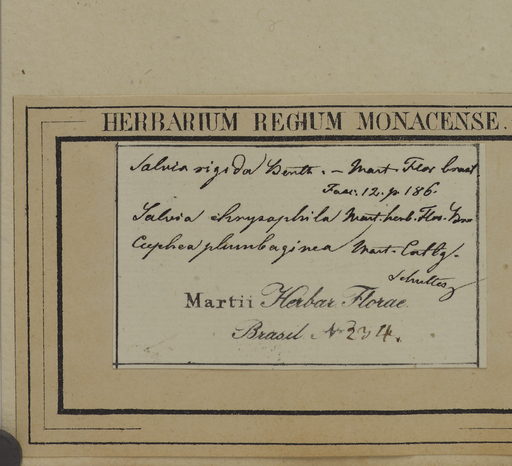 HERBARIUM REGIUM MONACENSE.
Salvia rigida Benth. – Mart. Flor bras.
Fasc. 12. p. 186
Salvia chrysophila Mart. herb. Flor. Bras
Cuphea plumbaginea Mart. Catlg.
Schultes
Martii Herbar Florae
Brasil No 234.